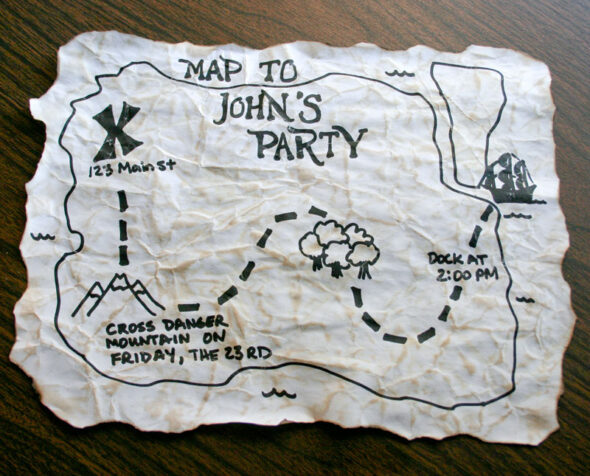 MAP TO
JOHN'S
PARTY
X
123 Main St
DOCK AT
2:00 PM
CROSS DANGER
MOUNTAIN ON
FRIDAY, THE 23RD